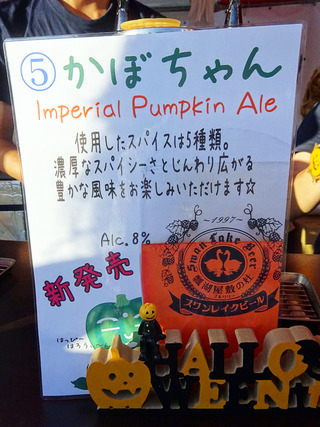 ⑤かぼちゃん
Imperial Pumpkin Ale
使用したスパイスは5種類。
濃厚なスパイシーさとじんわり広がる
豊かな風味をお楽しみいただけます☆
Alc. 8%
新発売
~1997~
Swan Lake Beer
瓢湖屋敷の杜
スワンレイクビール
はっぴー
はろう
HALLO
WEEN